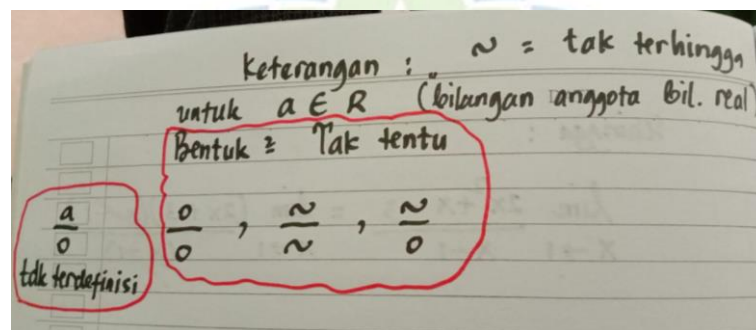 Keterangan : ~ = tak terhingga
untuk a ∈ R (bilangan anggota bil. real)
Bentuk ² Tak tentu
a/0 0/0 , ~/~ , ~/0
tdk terdefinisi